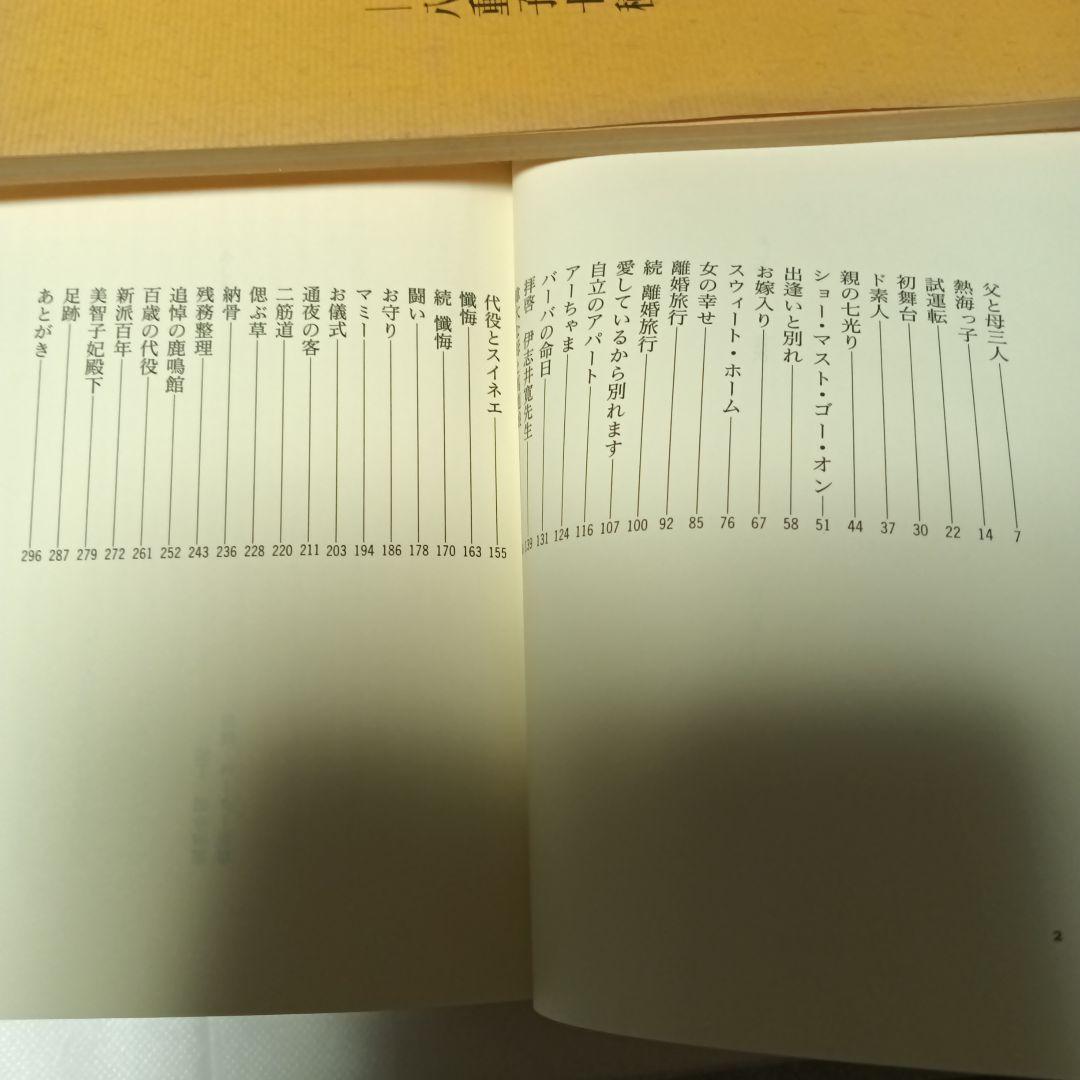 父と母三人 7
熱海っ子 14
試運転 22
初舞台 30
ド素人 37
親の七光り 44
ショー・マスト・ゴー・オン 51
出逢いと別れ 58
お嫁入り 67
スウィート・ホーム 76
女の幸せ 85
離婚旅行 92
続 離婚旅行 100
愛しているから別れます 107
自立のアパート 116
アーちゃま 124
バーバの命日 131
拝啓 伊志井寛先生 139
代役とスイネエ 155
懺悔 163
続 懺悔 170
闘い 178
お守り 186
マミー 194
お儀式 203
通夜の客 211
二筋道 220
偲ぶ草 228
納骨 236
残務整理 243
追悼の鹿鳴館 252
百歳の代役 261
新派百年 272
美智子妃殿下 279
足跡 287
あとがき 296
2